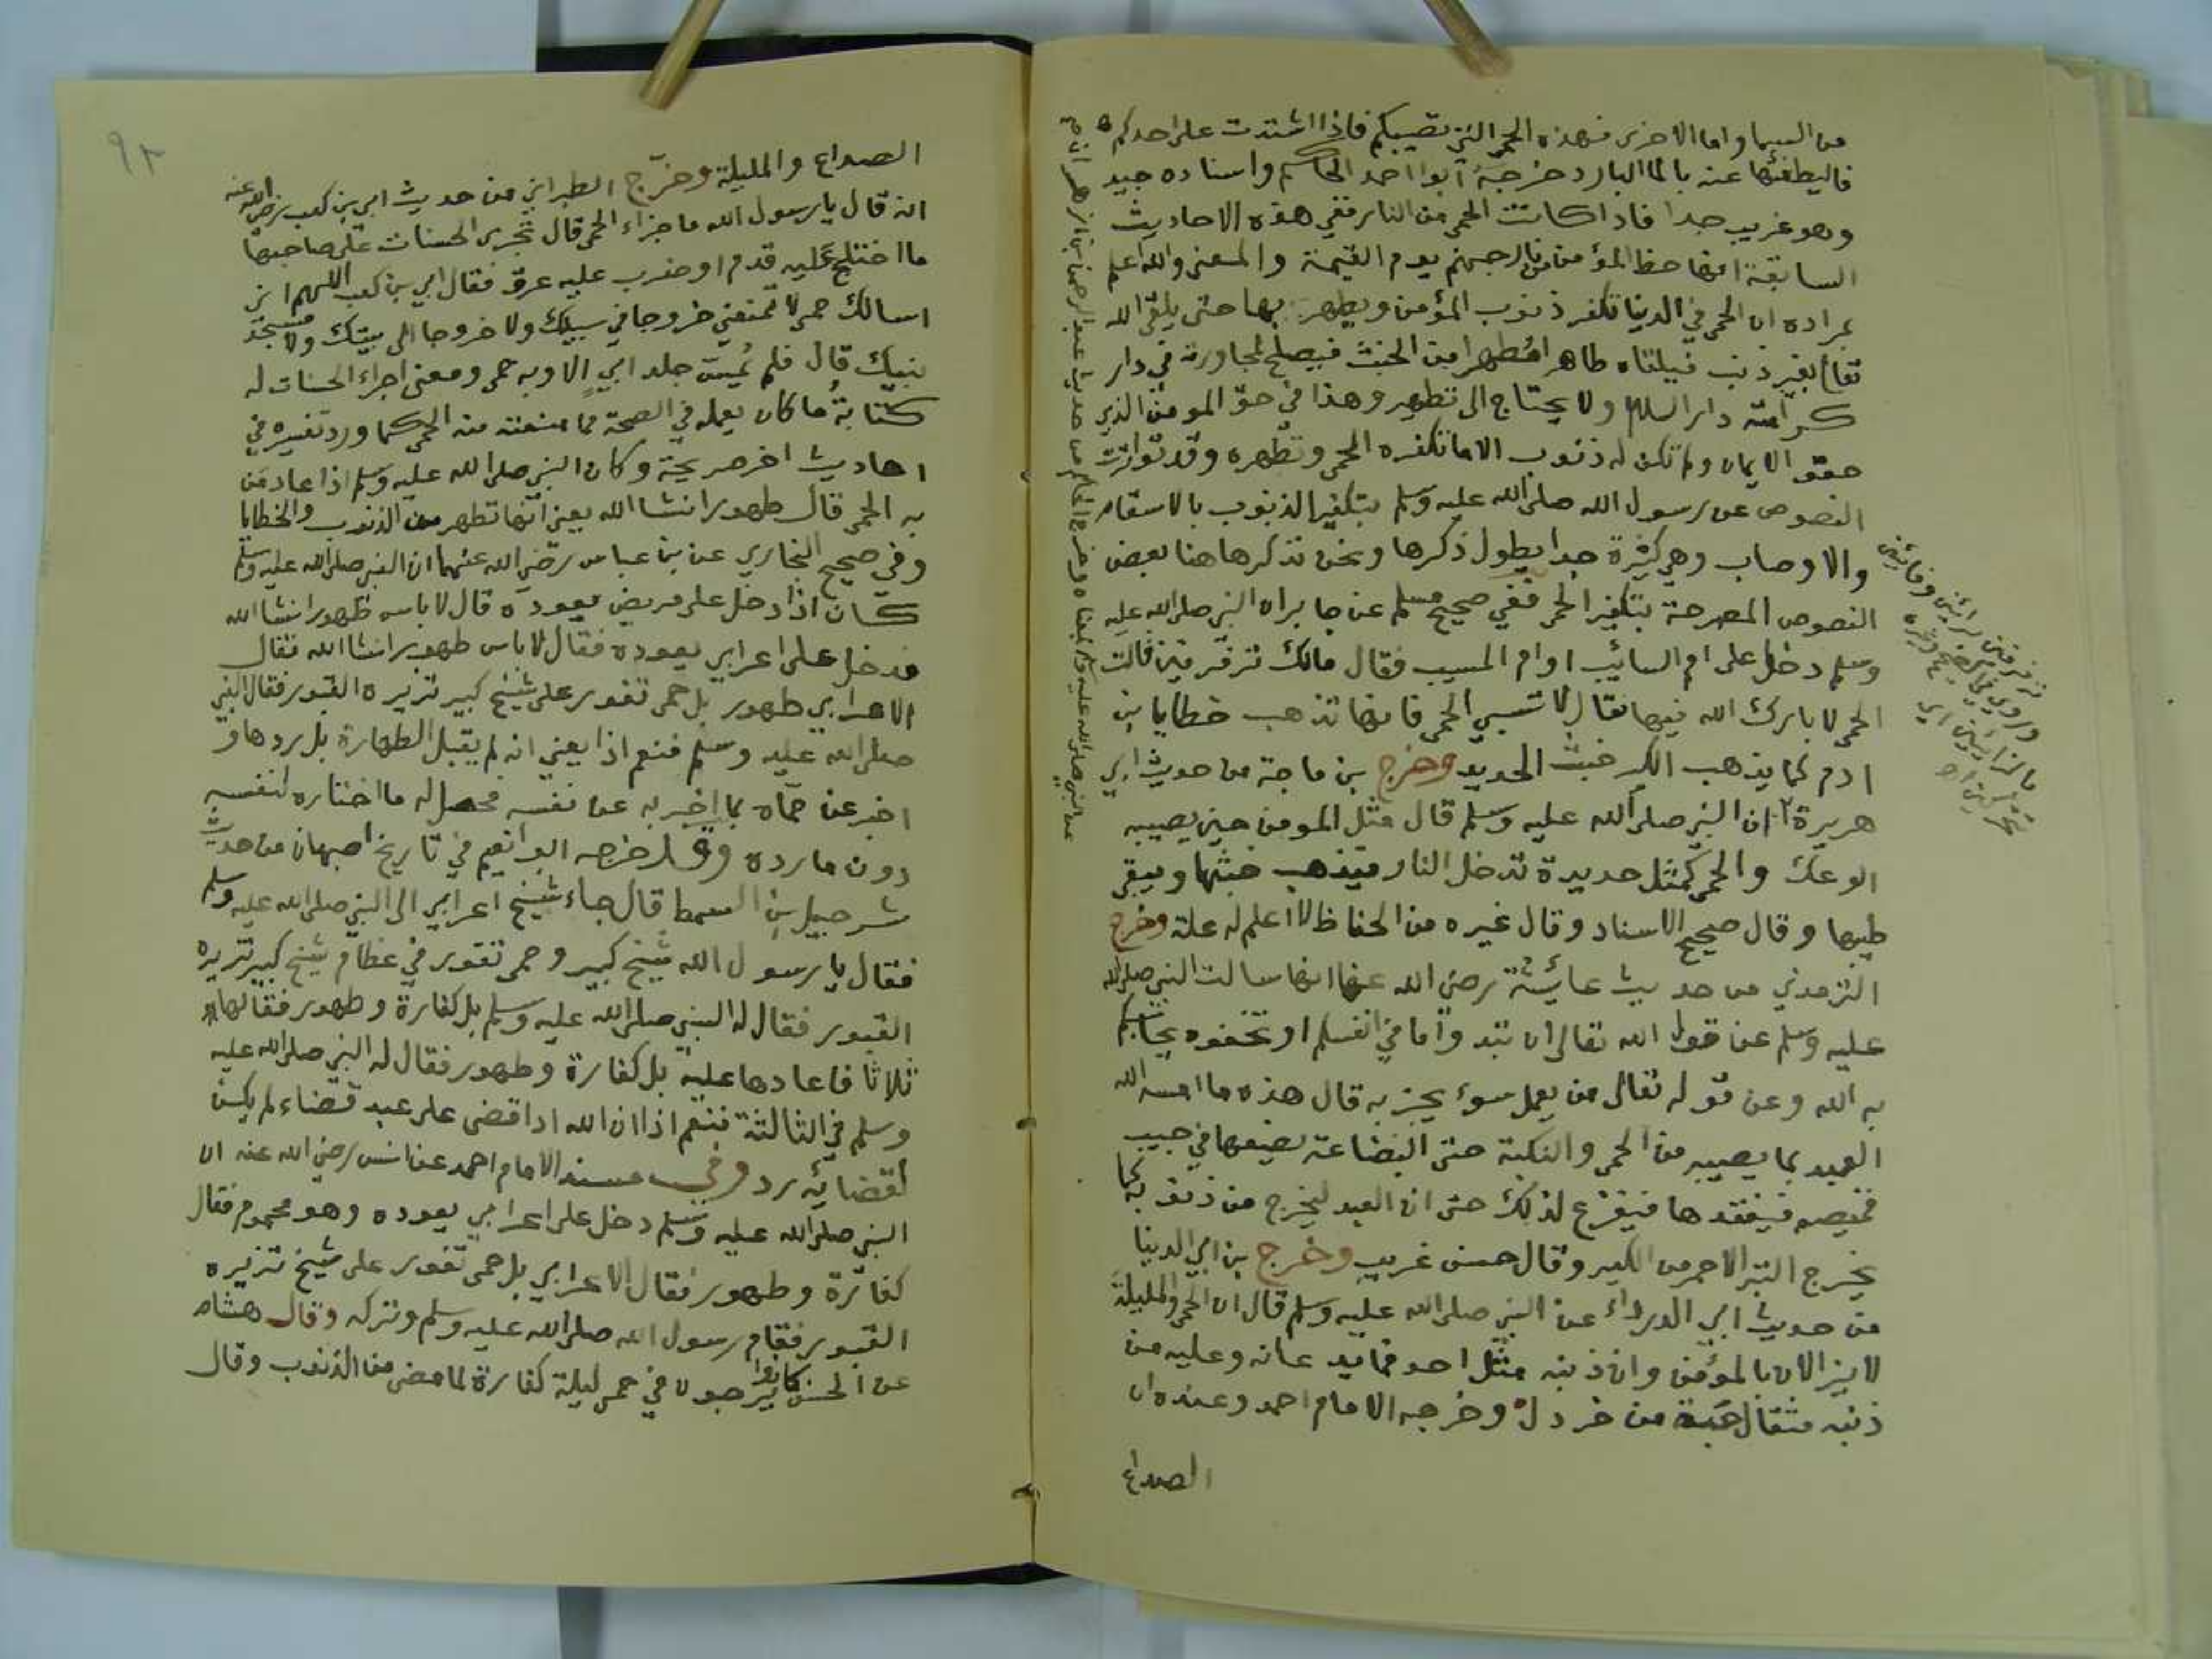 من السما واما الاخرى فهذه الحمى التي تصيبكم فاذا اشتدت على احدكم
فاليطفئها عنه بالما البارد خرجه ابوا احمد الحاكم واسناده جيد
وهو غريب جدا فاذا كانت الحمى من النار ففي هذه الاحاديث
السابقة انها حظ المؤمن من نار جهنم يوم القيمة والمعنى والله اعلم
براده ان الحمى في الدنيا تكفر ذنوب المؤمن ويطهر بها حتى يلقى الله
تعالى بغير ذنب فيلقاه طاهرا مطهرا من الخبث فيصلح لمجاورته في دار
كرامته دار السلام ولا يحتاج الى تطهير وهذا في حق المومن الذي
حقق الايمان ولم تكن له ذنوب الا ما تكفره الحمى وتطهره وقد تواترت
النصوص عن رسول الله صلى الله عليه وسلم بتكفير الذنوب بالاسقام
والاوصاب وهي كثيرة جدا يطول ذكرها ونحن نذكرها هنا بعض
النصوص المصرحة بتكفير الحمى ففي صحيح مسلم عن جابر ان النبي صلى الله عليه
وسلم دخل على ام السائب او ام المسيب فقال مالك تزفزفين قالت
الحمى لا بارك الله فيها فقال لا تسبي الحمى فانها تذهب خطايا بني
ادم كما يذهب الكير خبث الحديد وخرج بن ماجة من حديث ابي
هريرة ان النبي صلى الله عليه وسلم قال مثل المومن حين يصيبه
الوعك والحمى كمثل حديدة تدخل النار فيذهب خبثها ويبقى
طيبها وقال صحيح الاسناد وقال غيره من الحفاظ لا اعلم له علة وخرج
الترمذي من حديث عائشة رضي الله عنها انها سالت النبي صلى الله
عليه وسلم عن قول الله تعالى ان تبدوا ما في انفسكم او تخفوه يحاسبكم
به الله وعن قوله تعالى من يعمل سوء يجز به قال هذه ما امسه الله
العبد بما يصيبه من الحمى والنكبة حتى البضاعة يضعها في جيب
قميصه فيفقدها فيفزع لذلك حتى ان العبد ليخرج من ذنوبه كما
يخرج التبر الاحمر من الكير وقال حسن غريب وخرج بن ابي الدنيا
من حديث ابي الدرداء عن النبي صلى الله عليه وسلم قال ان الحمى والمليلة
لا يزالان بالمؤمن وان ذنبه مثل احد فما يدعانه وعليه من
ذنبه مثقال حبة من خردل وخرجه الامام احمد وعنده ان
الصداع
٩٢
الصداع والمليلة وخرج الطبراني من حديث ابي بن كعب رضي الله عنه
انه قال يا رسول الله ما جزاء الحمى قال تجري الحسنات على صاحبها
ما اختلج عليه قدم او ضرب عليه عرق فقال ابي بن كعب اللهم اني
اسالك حمى لا تمنعني خروجا في سبيلك ولا خروجا الى بيتك ولا مسجد
نبيك قال فلم يمس جلد ابي الا وبه حمى ومعنى اجراء الحسنات له
كتابة ما كان يعمله في الصحة مما منعته منه الحمى كما ورد تفسيره في
احاديث اخر صريحة وكان النبي صلى الله عليه وسلم اذا عاد من
به الحمى قال طهور انشا الله يعني انها تطهر من الذنوب والخطايا
وفي صحيح البخاري عن بن عباس رضي الله عنهما ان النبي صلى الله عليه وسلم
كان اذا دخل على مريض يعوده قال لا باس طهور انشا الله
فدخل على اعرابي يعوده فقال لا باس طهور انشا الله فقال
الاعرابي طهور بل حمى تفور على شيخ كبير تزيره القبور فقال النبي
صلى الله عليه وسلم فنعم اذا يعني انه لم يقبل الطهارة بل ردها و
اخبر عن حماه بما اخبر به عن نفسه فحصل له ما اختاره لنفسه
دون ما رده وقد خرجه ابوا نعيم في تاريخ اصبهان من حديث
شرحبيل بن السمط قال جاء شيخ اعرابي الى النبي صلى الله عليه وسلم
فقال يا رسول الله شيخ كبير وحمى تفور في عظام شيخ كبير تزيره
القبور فقال له النبي صلى الله عليه وسلم بل كفارة وطهور فقالها
ثلاثا فاعادها عليه بل كفارة وطهور فقال له النبي صلى الله عليه
وسلم في الثالثة فنعم اذا ان الله اذا قضى على عبد قضاء لم يكن
لقضائه رد وفي مسند الامام احمد عن انس رضي الله عنه ان
النبي صلى الله عليه وسلم دخل على اعرابي يعوده وهو محموم فقال
كفارة وطهور فقال الاعرابي بل حمى تفور على شيخ تزيره
القبور فقام رسول الله صلى الله عليه وسلم وتركه وقال هشام
عن الحسن كانوا يرجون في حمى ليلة كفارة لما مضى من الذنوب وقال